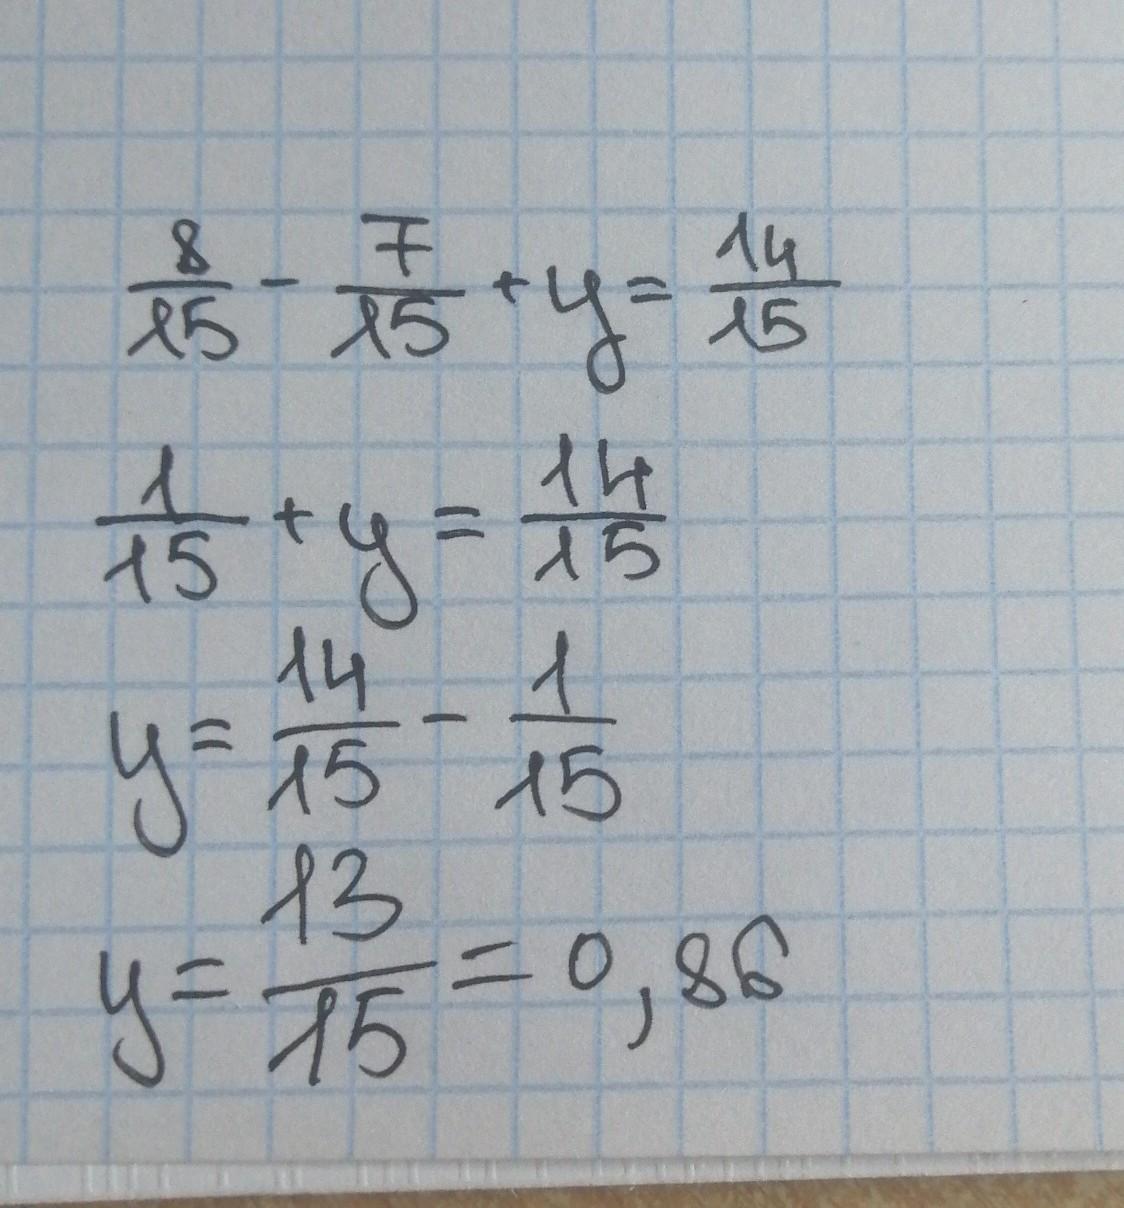 8/15 - 7/15 + y = 14/15
1/15 + y = 14/15
y = 14/15 - 1/15
y = 13/15 = 0,86